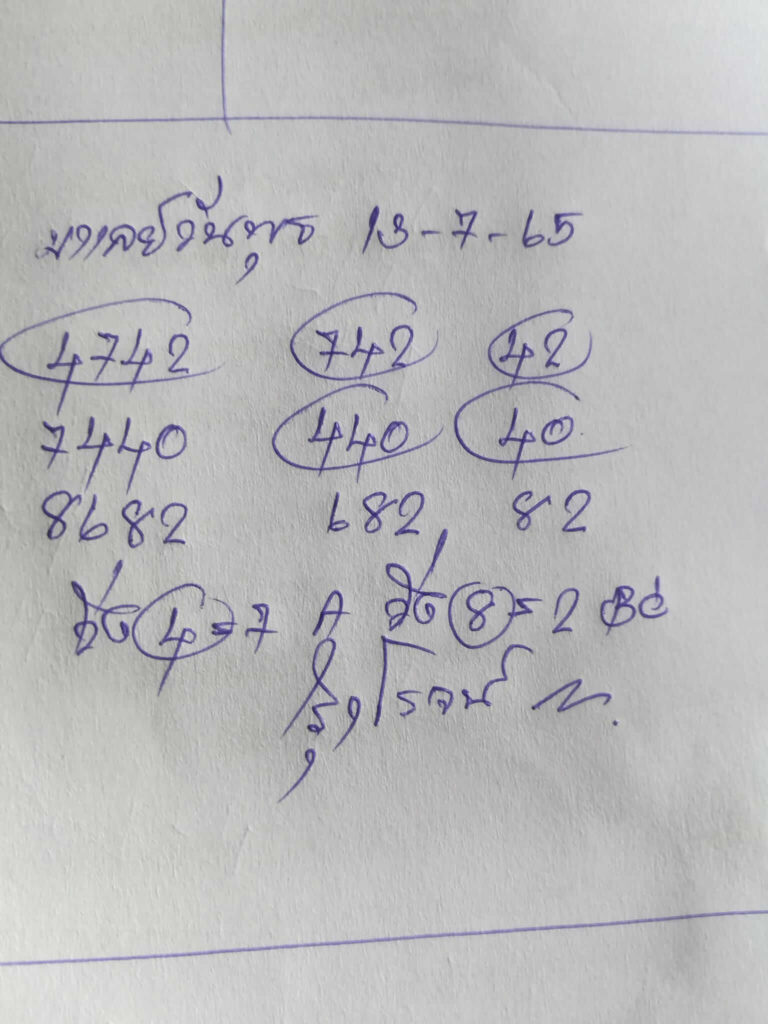 มาเลย์วันพุธ 13-7-65
4742 742 42
7440 440 40
8682 682 82
วิ่ง 4=7 A วิ่ง 8=2 BC
รุ่งโรจน์